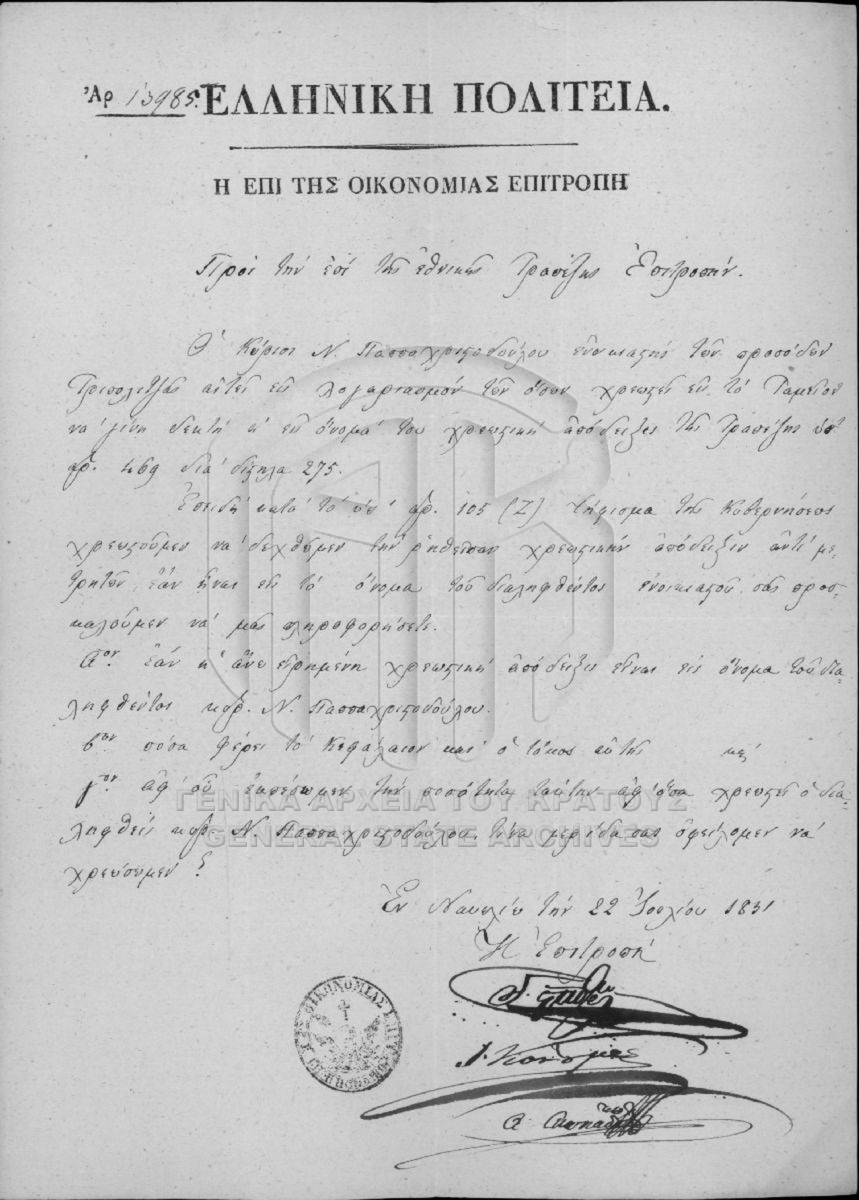 Ἀρ 13985. ΕΛΛΗΝΙΚΗ ΠΟΛΙΤΕΙΑ.
Η ΕΠΙ ΤΗΣ ΟΙΚΟΝΟΜΙΑΣ ΕΠΙΤΡΟΠΗ
Πρὸς τὴν ἐπὶ τῆς ἐθνικῆς Τραπέζης Ἐπιτροπήν.
Ὁ Κύριος Ν. Παππαχριστοδούλου ἐνοικιαστὴς τῶν προσόδων
Τριπολιτζᾶς αἰτεῖ εἰς λογαριασμὸν τῶν ὅσων χρεωστεῖ εἰς τὸ Ταμεῖον
νὰ γίνῃ δεκτὴ ἡ εἰς ὄνομά του χρεωστικὴ ἀπόδειξις τῆς Τραπέζης ὑπ'
ἀρ. 469 διὰ δίστηλα 275.
Ἐπειδὴ κατὰ τὸ ὑπ' ἀρ. 105 (Ζ) ψήφισμα τῆς Κυβερνήσεως
χρεωστοῦμεν νὰ δεχθῶμεν τὴν ῥηθεῖσαν χρεωστικὴν ἀπόδειξιν ἀντὶ με-
τρητῶν, ἐὰν ἦναι εἰς τὸ ὄνομα τοῦ διαληφθέντος ἐνοικιαστοῦ, σᾶς προσ-
καλοῦμεν νὰ μᾶς πληροφορήσετε.
αον. ἐὰν ἡ ἄνω εἰρημένη χρεωστικὴ ἀπόδειξις εἶναι εἰς ὄνομα τοῦ δια-
ληφθέντος κυρ. Ν. Παππαχριστοδούλου.
βον πόσα φέρει τὸ κεφάλαιον καὶ ὁ τόκος αὐτῆς καὶ
γον ἀφ' οὗ ἐκπέσωμεν τὴν ποσότητα ταύτην ἀφ' ὅσα χρεωστεῖ ὁ δια-
ληφθεὶς κυρ. Ν. Παππαχριστοδούλου, τίνα μερίδα σας ὀφείλομεν νὰ
χρεώσωμεν;
Ἐν Ναυπλίῳ τὴν 22 Ἰουλίου 1831
Ἡ Ἐπιτροπὴ
ΓΕΝΙΚΑ ΑΡΧΕΙΑ ΤΟΥ ΚΡΑΤΟΥΣ
GENERAL STATE ARCHIVES